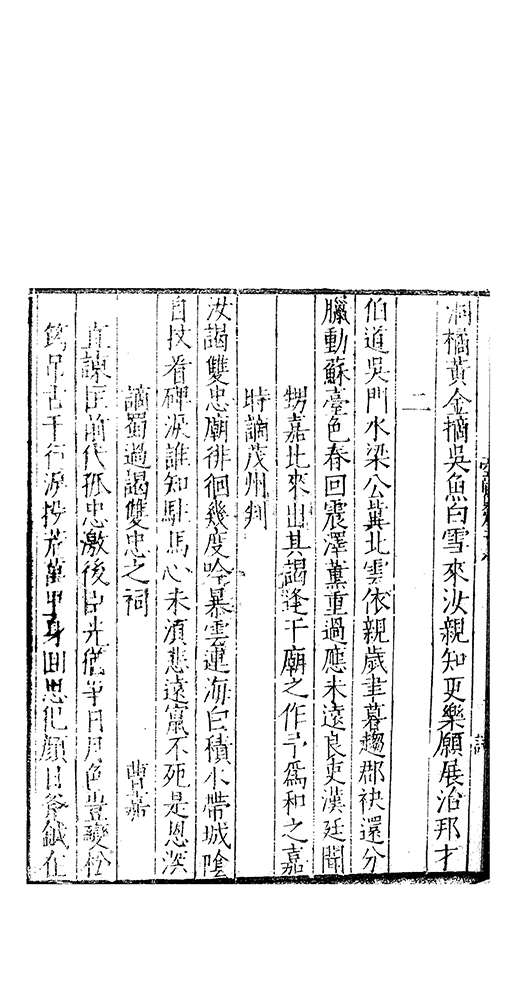 洞橘黃金摘吳魚白雪來汝親知更樂願展治邦才
二
伯道吳門水梁公冀北雲依親歲聿暮趨郡袂還分
臘動蘇臺色春回震澤薰重過應未遠良吏漢廷聞
甥嘉比來出其謁逢干廟之作予爲和之嘉
時謫茂州判
汝謁雙忠廟徘徊幾度吟暴雲連海白積水帶城陰
自拉看碑淚誰知駐馬心未須悲遠竄不死是恩深
謫蜀過謁雙忠之祠 曹嘉
直諫匡前代孤忠激後臣光徂爭日月色豈變松
筠弔古千行淚投荒萬里身回思犯顏日斧鉞在
詩